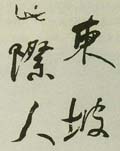 東坡
此際人